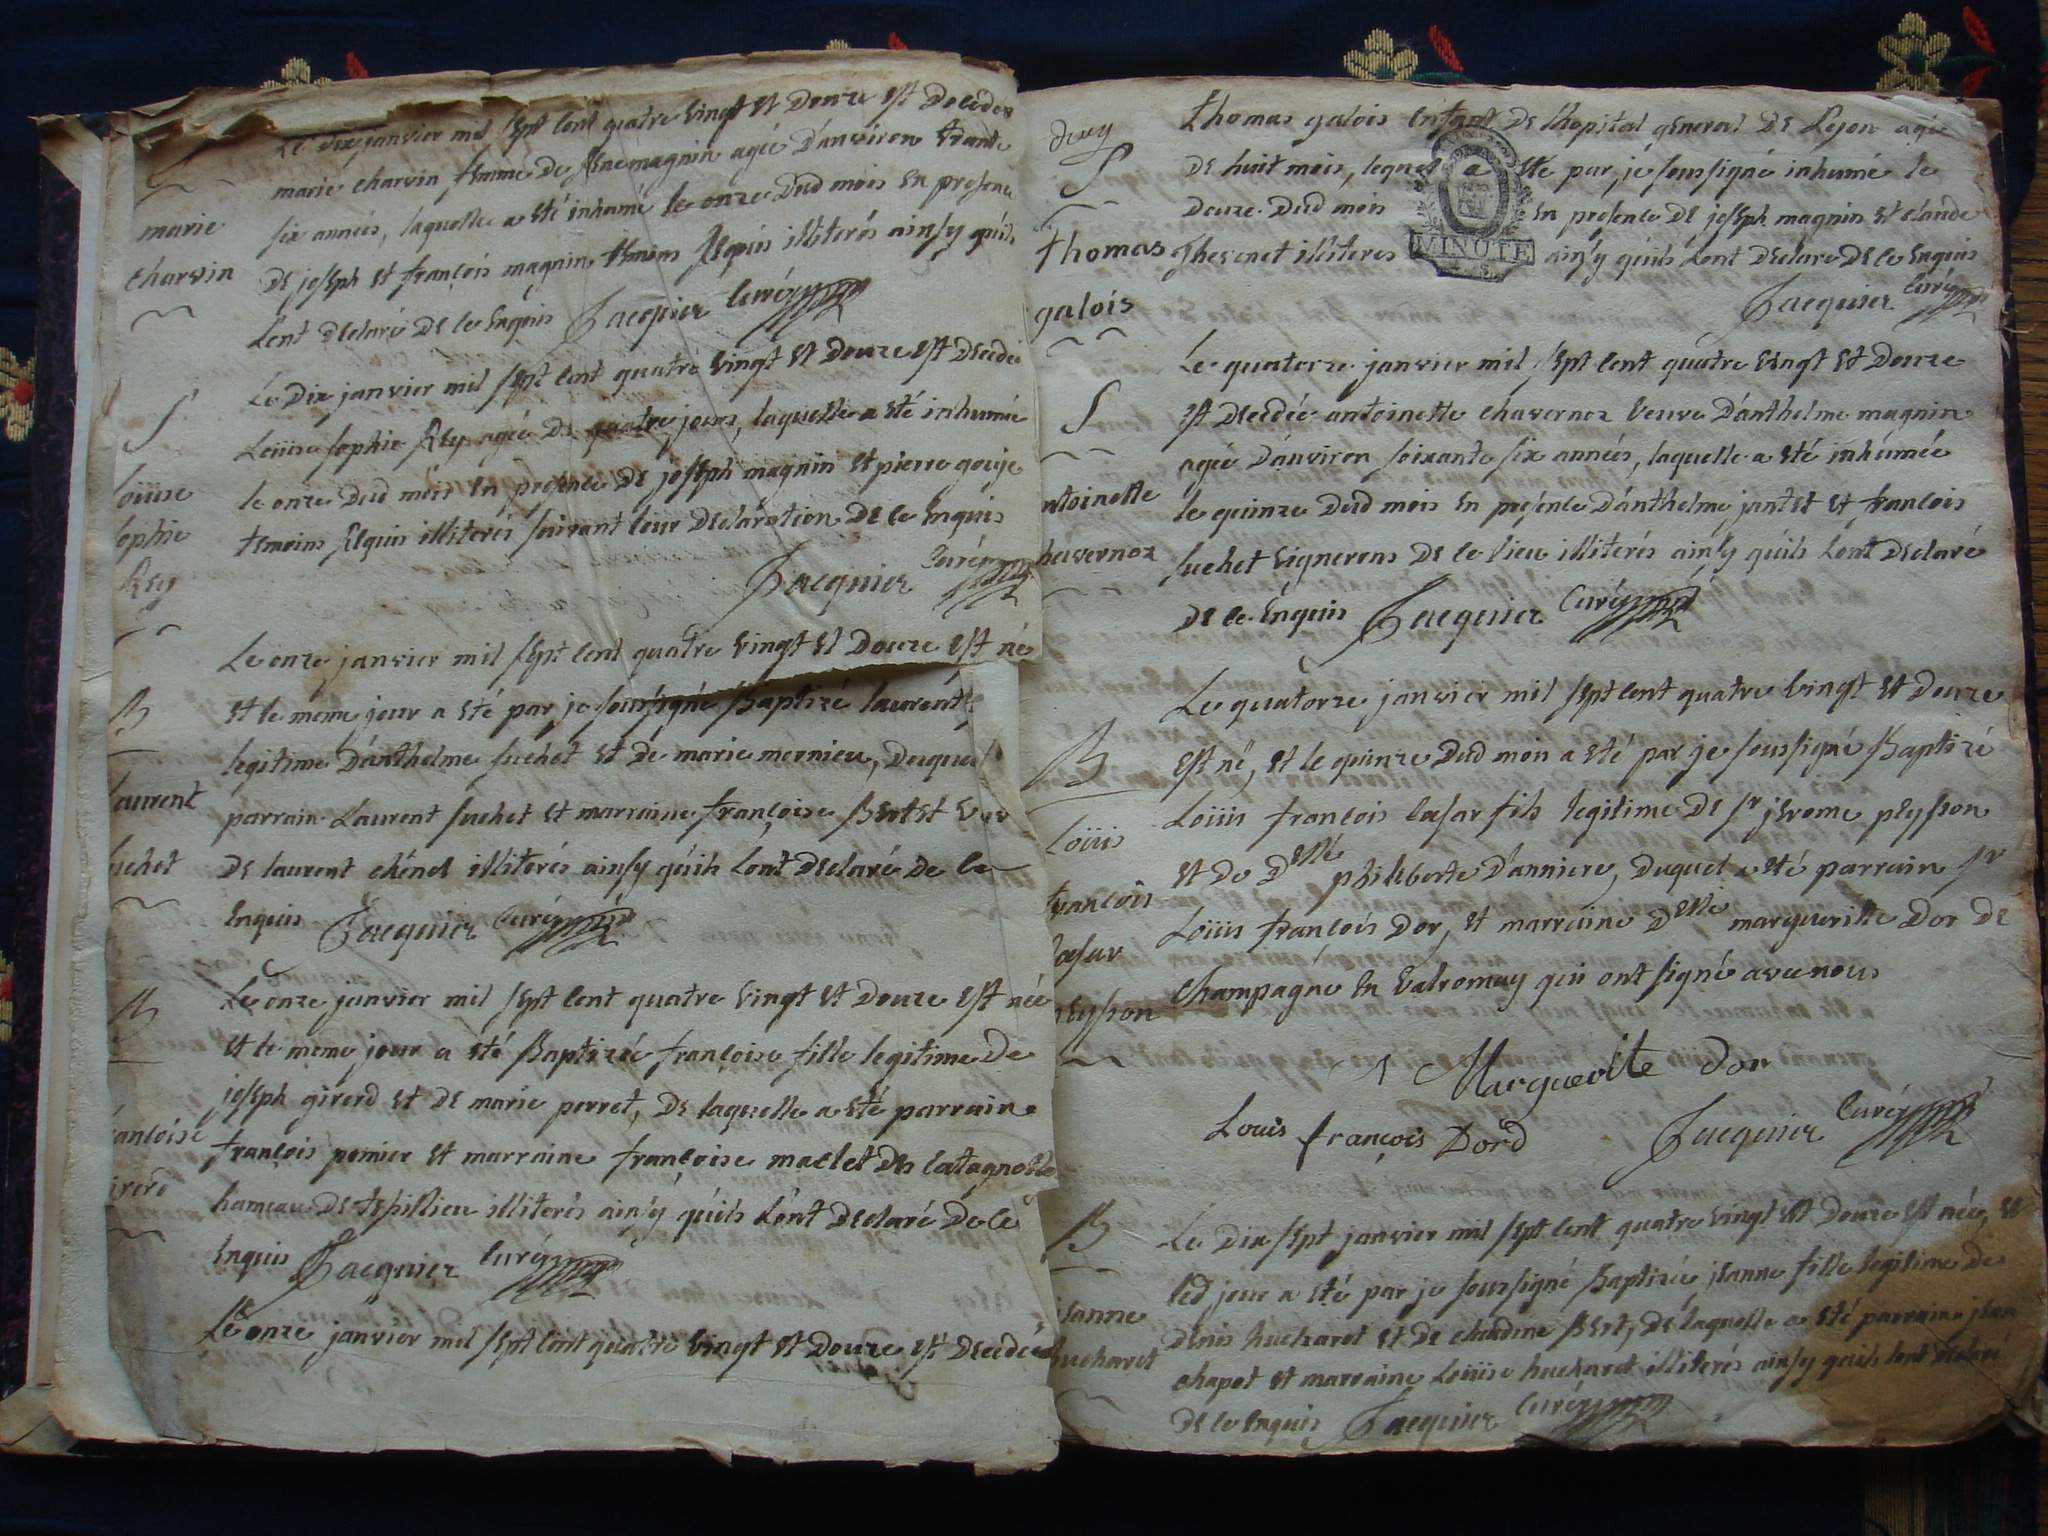 marie
charvin
Le dix janvier mil sept cent quatre vingt et douze est décédée
marie charvin femme de René magnin agée d'anviron trante
six années, laquelle a eté inhumé le onze dud mois en presence
de joseph et françois magnin temoins Requis illiterés ainsy qu'ils
l'ont declaré de ce enquis Jacquier curé
S
loüise
sophie
Rey
Le dix janvier mil sept cent quatre vingt et douze est decedée
Loüise sophie Rey agée de quatre jours, laquelle a eté inhumée
le onze dud mois en presence de joseph magnin et pierre gouje
temoins Requis illiterés suivant leur declaration de ce enquis
Jacquier curé
B
laurent
suchet
Le onze janvier mil sept cent quatre vingt et douze est né
et le meme jour a eté par je soussigné Baptizé laurent
legitime d'anthelme suchet et de marie mernieu, duquel
parrain Laurent suchet et marraine françoise Bertet
de laurent chénel illiterés ainsy qu'ils l'ont declaré de ce
enquis Jacquier curé
B
françoise
girerd
Le onze janvier mil sept cent quatre vingt et douze est née
et le meme jour a eté Baptizée françoise fille legitime de
joseph girerd et de marie perret, de laquelle a eté parrain
françois pomier et marraine françoise maclet de catagnolle
hameau de tepillieu illiterés ainsy qu'ils l'ont declaré de ce
enquis Jacquier curé
Le onze janvier mil sept cent quatre vingt et douze est decedé
deux
S
thomas
galois
thomas galois enfant de l'hopital general de Lyon agé
de huit mois, lequel a eté par, je soussigné inhumé le
douze dud mois en presence de joseph magnin et claude
thevenet illiteres ainsy qu'ils l'ont declare de ce enquis
MINUTE
Jacquier curé
S
ntoinette
chavernoz
Le quatorze janvier mil sept cent quatre vingt et douze
est decedée antoinette chavernoz veuve d'anthelme magnin
agée d'anviron soixante six années, laquelle a eté inhumée
le quinze dud mois en presence d'anthelme jantet et françois
suchet vignerons de ce lieu illiterés ainsy qu'ils l'ont declaré
de ce enquis Jacquier curé
B
Loüis
françois
cæsar
peysson
Le quatorze janvier mil sept cent quatre vingt et douze
est né, et le quinze dud mois a eté par je soussigné Baptizé
Loüis françois cæsar fils legitime de sr jerome peysson
et de Delle philiberte d'anniere, duquel a eté parrain sr
Loüis françois dor, et marraine Delle margueritte dor de
champagne en valromay qui ont signé avec nous
Marguerite dor
Louis françois Dord Jacquier curé
B
jeanne
hucharet
Le dix sept janvier mil sept cent quatre vingt et douze est née, et
led jour a eté par je soussigné Baptizée jeanne fille legitime de
denis hucharet et de claudine Bert, de laquelle a eté parrain jean
chapot et marraine Loüise hucharet illiterés ainsy qu'ils l'ont declaré
de ce enquis Jacquier curé